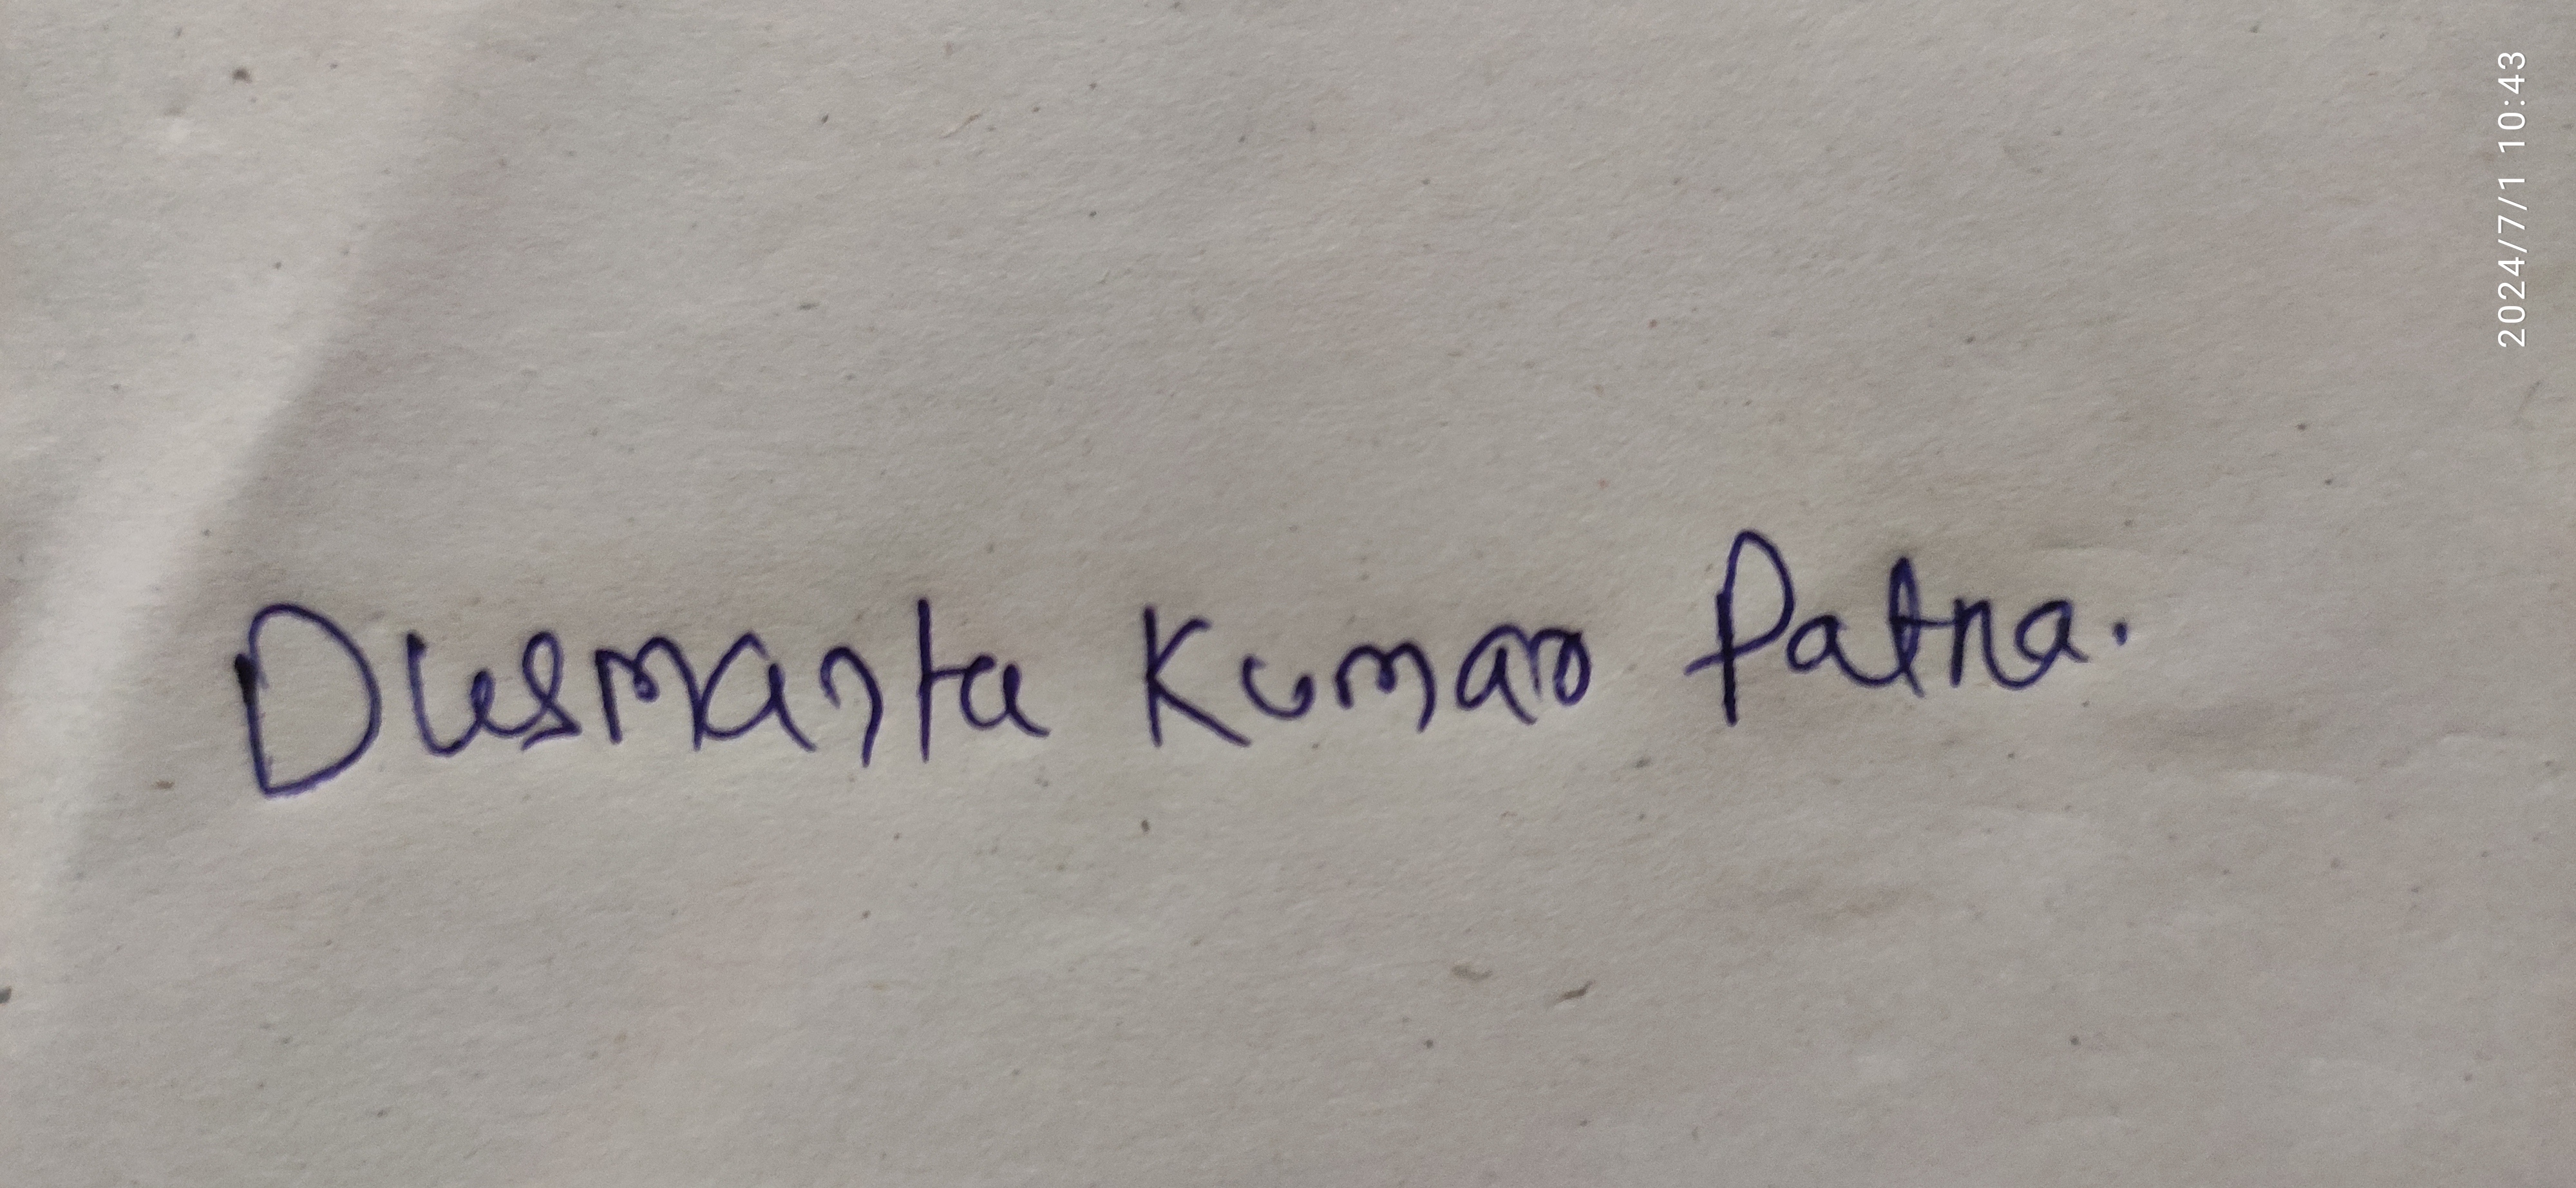 Dusmanta Kumar Patra.
2024/7/1 10:43